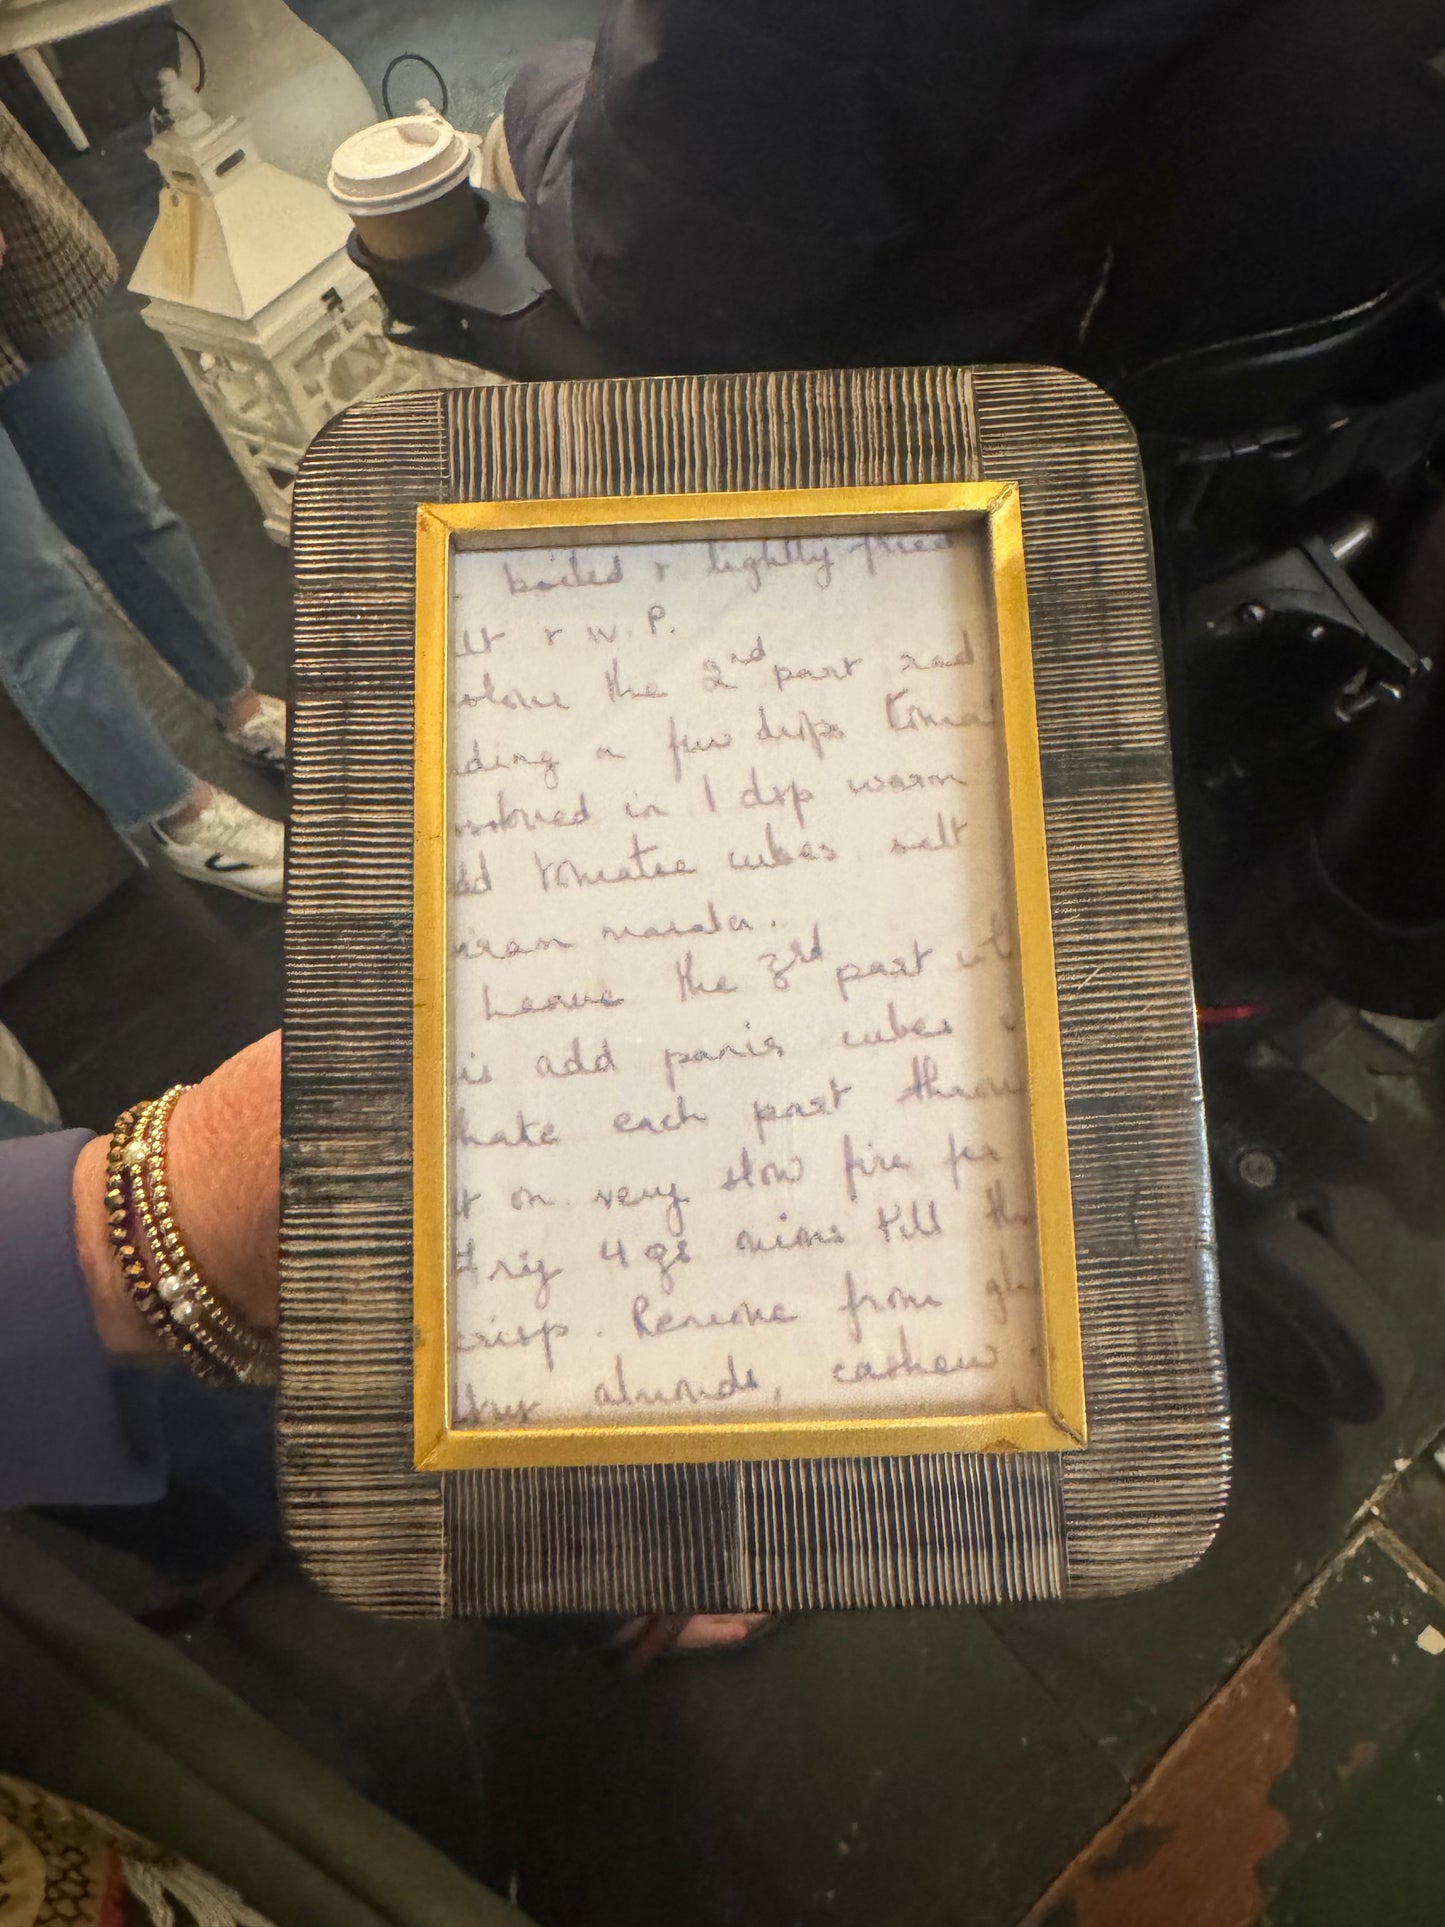 boiled & lightly fried
lt & W.P.
olour the 2nd part red
ding a few drops tomat
in 1 dsp warm
dd tomatoe cubes salt
aram masala.
Leave the 3rd part whi
is add panir cubes
hate each part throu
t on very slow fire for
Fry 4 gs nions till th
crisp. Remove from gh
almonds, cashew